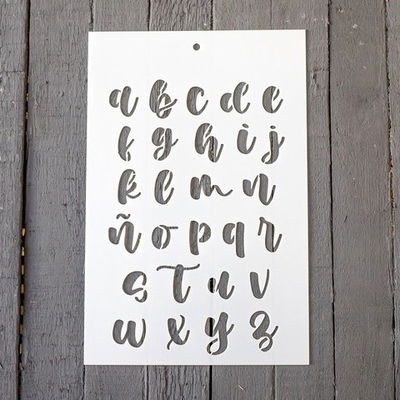 a b c d e
f g h i j
k l m n
ñ o p q r
s t u v
w x y z